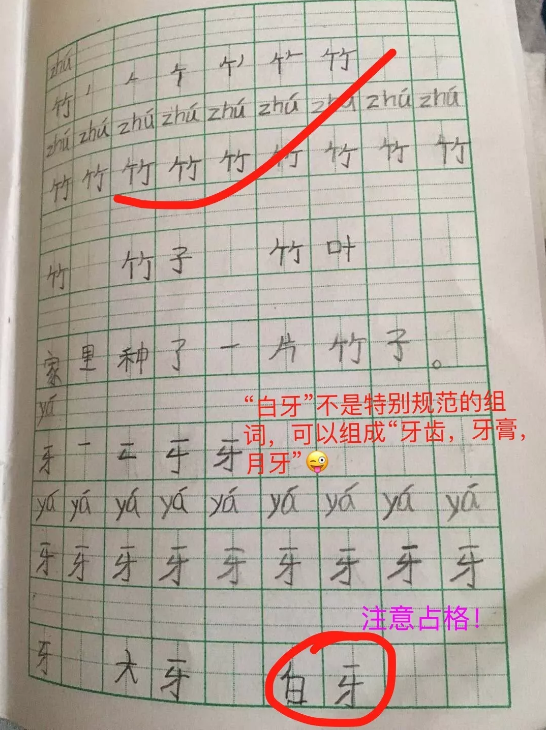 zhú
竹 丿 𠂉 ⺮ 竹
zhú zhú zhú zhú zhú zhú zhú zhú zhú
竹 竹 竹 竹 竹 竹 竹 竹 竹
竹 竹子 竹叶
家里种了一片竹子。
yá
“白牙”不是特别规范的组
词，可以组成“牙齿，牙膏，
月牙”😜
牙 一 牙
yá yá yá yá yá yá yá yá yá
牙 牙 牙 牙 牙 牙 牙 牙 牙
注意占格！
牙 大牙 白牙